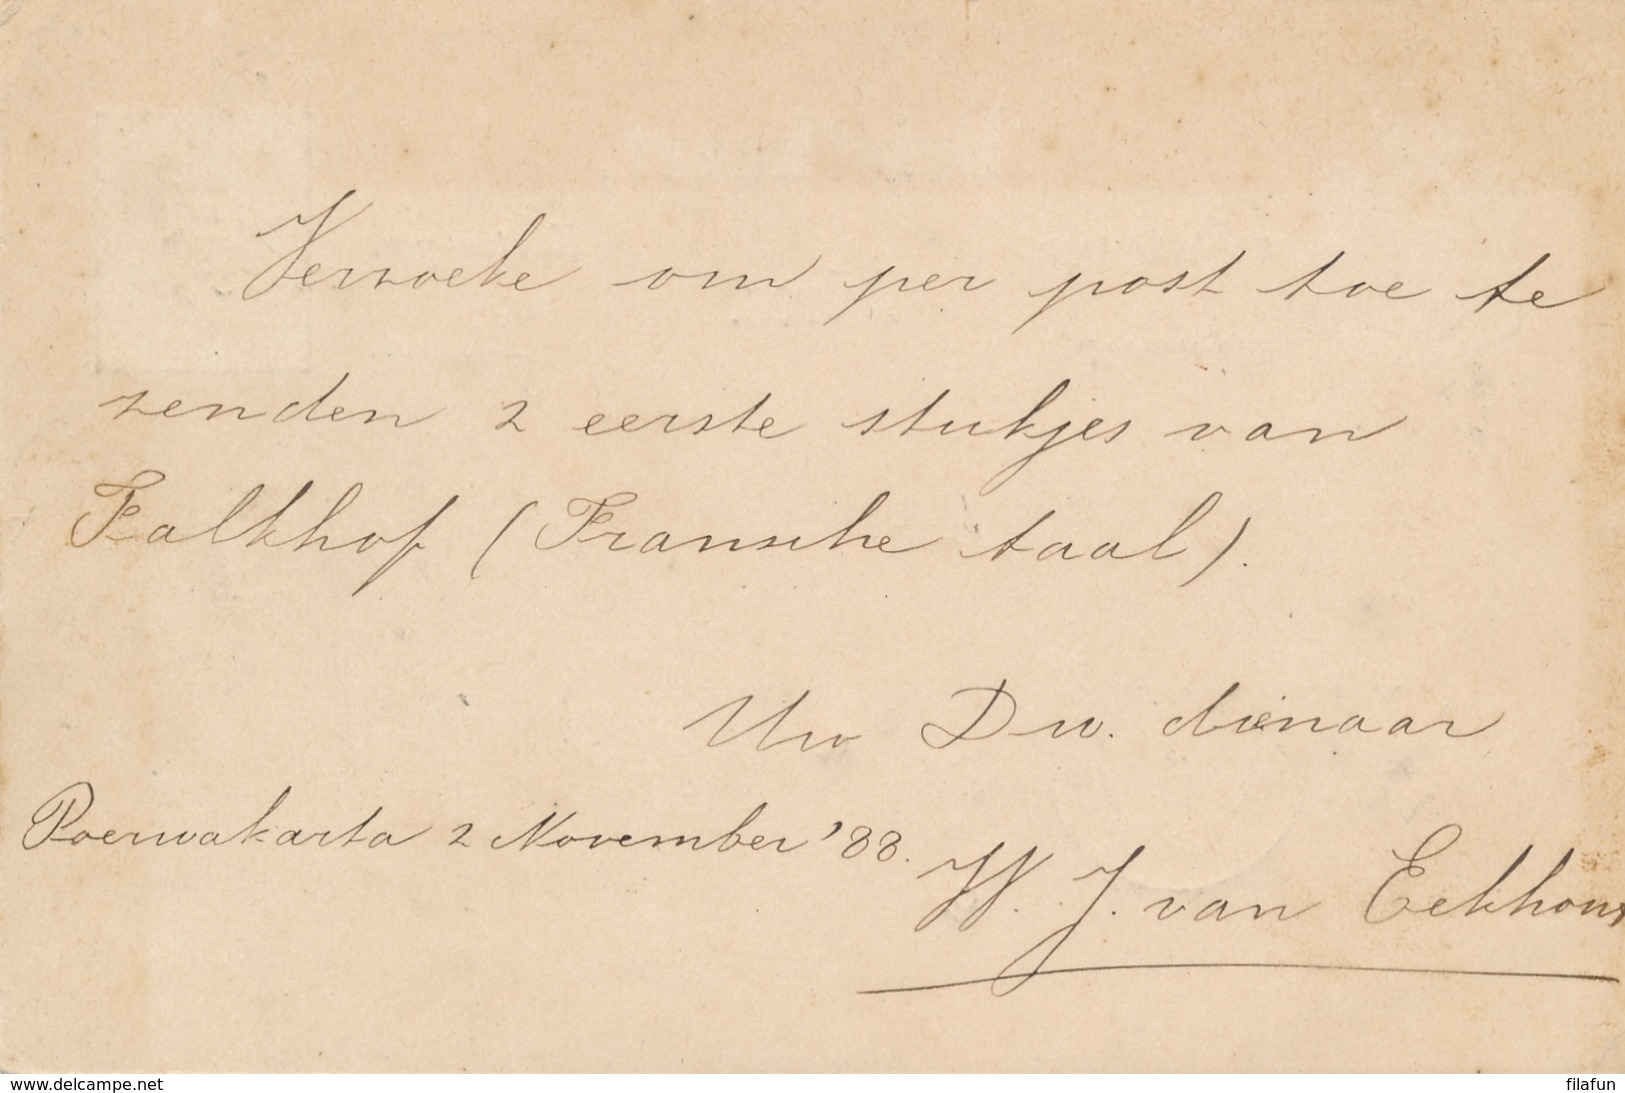 Verzoeke om per post toe te
zenden 2 eerste stukjes van
Falkhof (Fransche taal).
Uw Dw. dienaar
Poerwakarta 2 November '88.
W. J. van Eekhout
www.delcampe.net
filafun